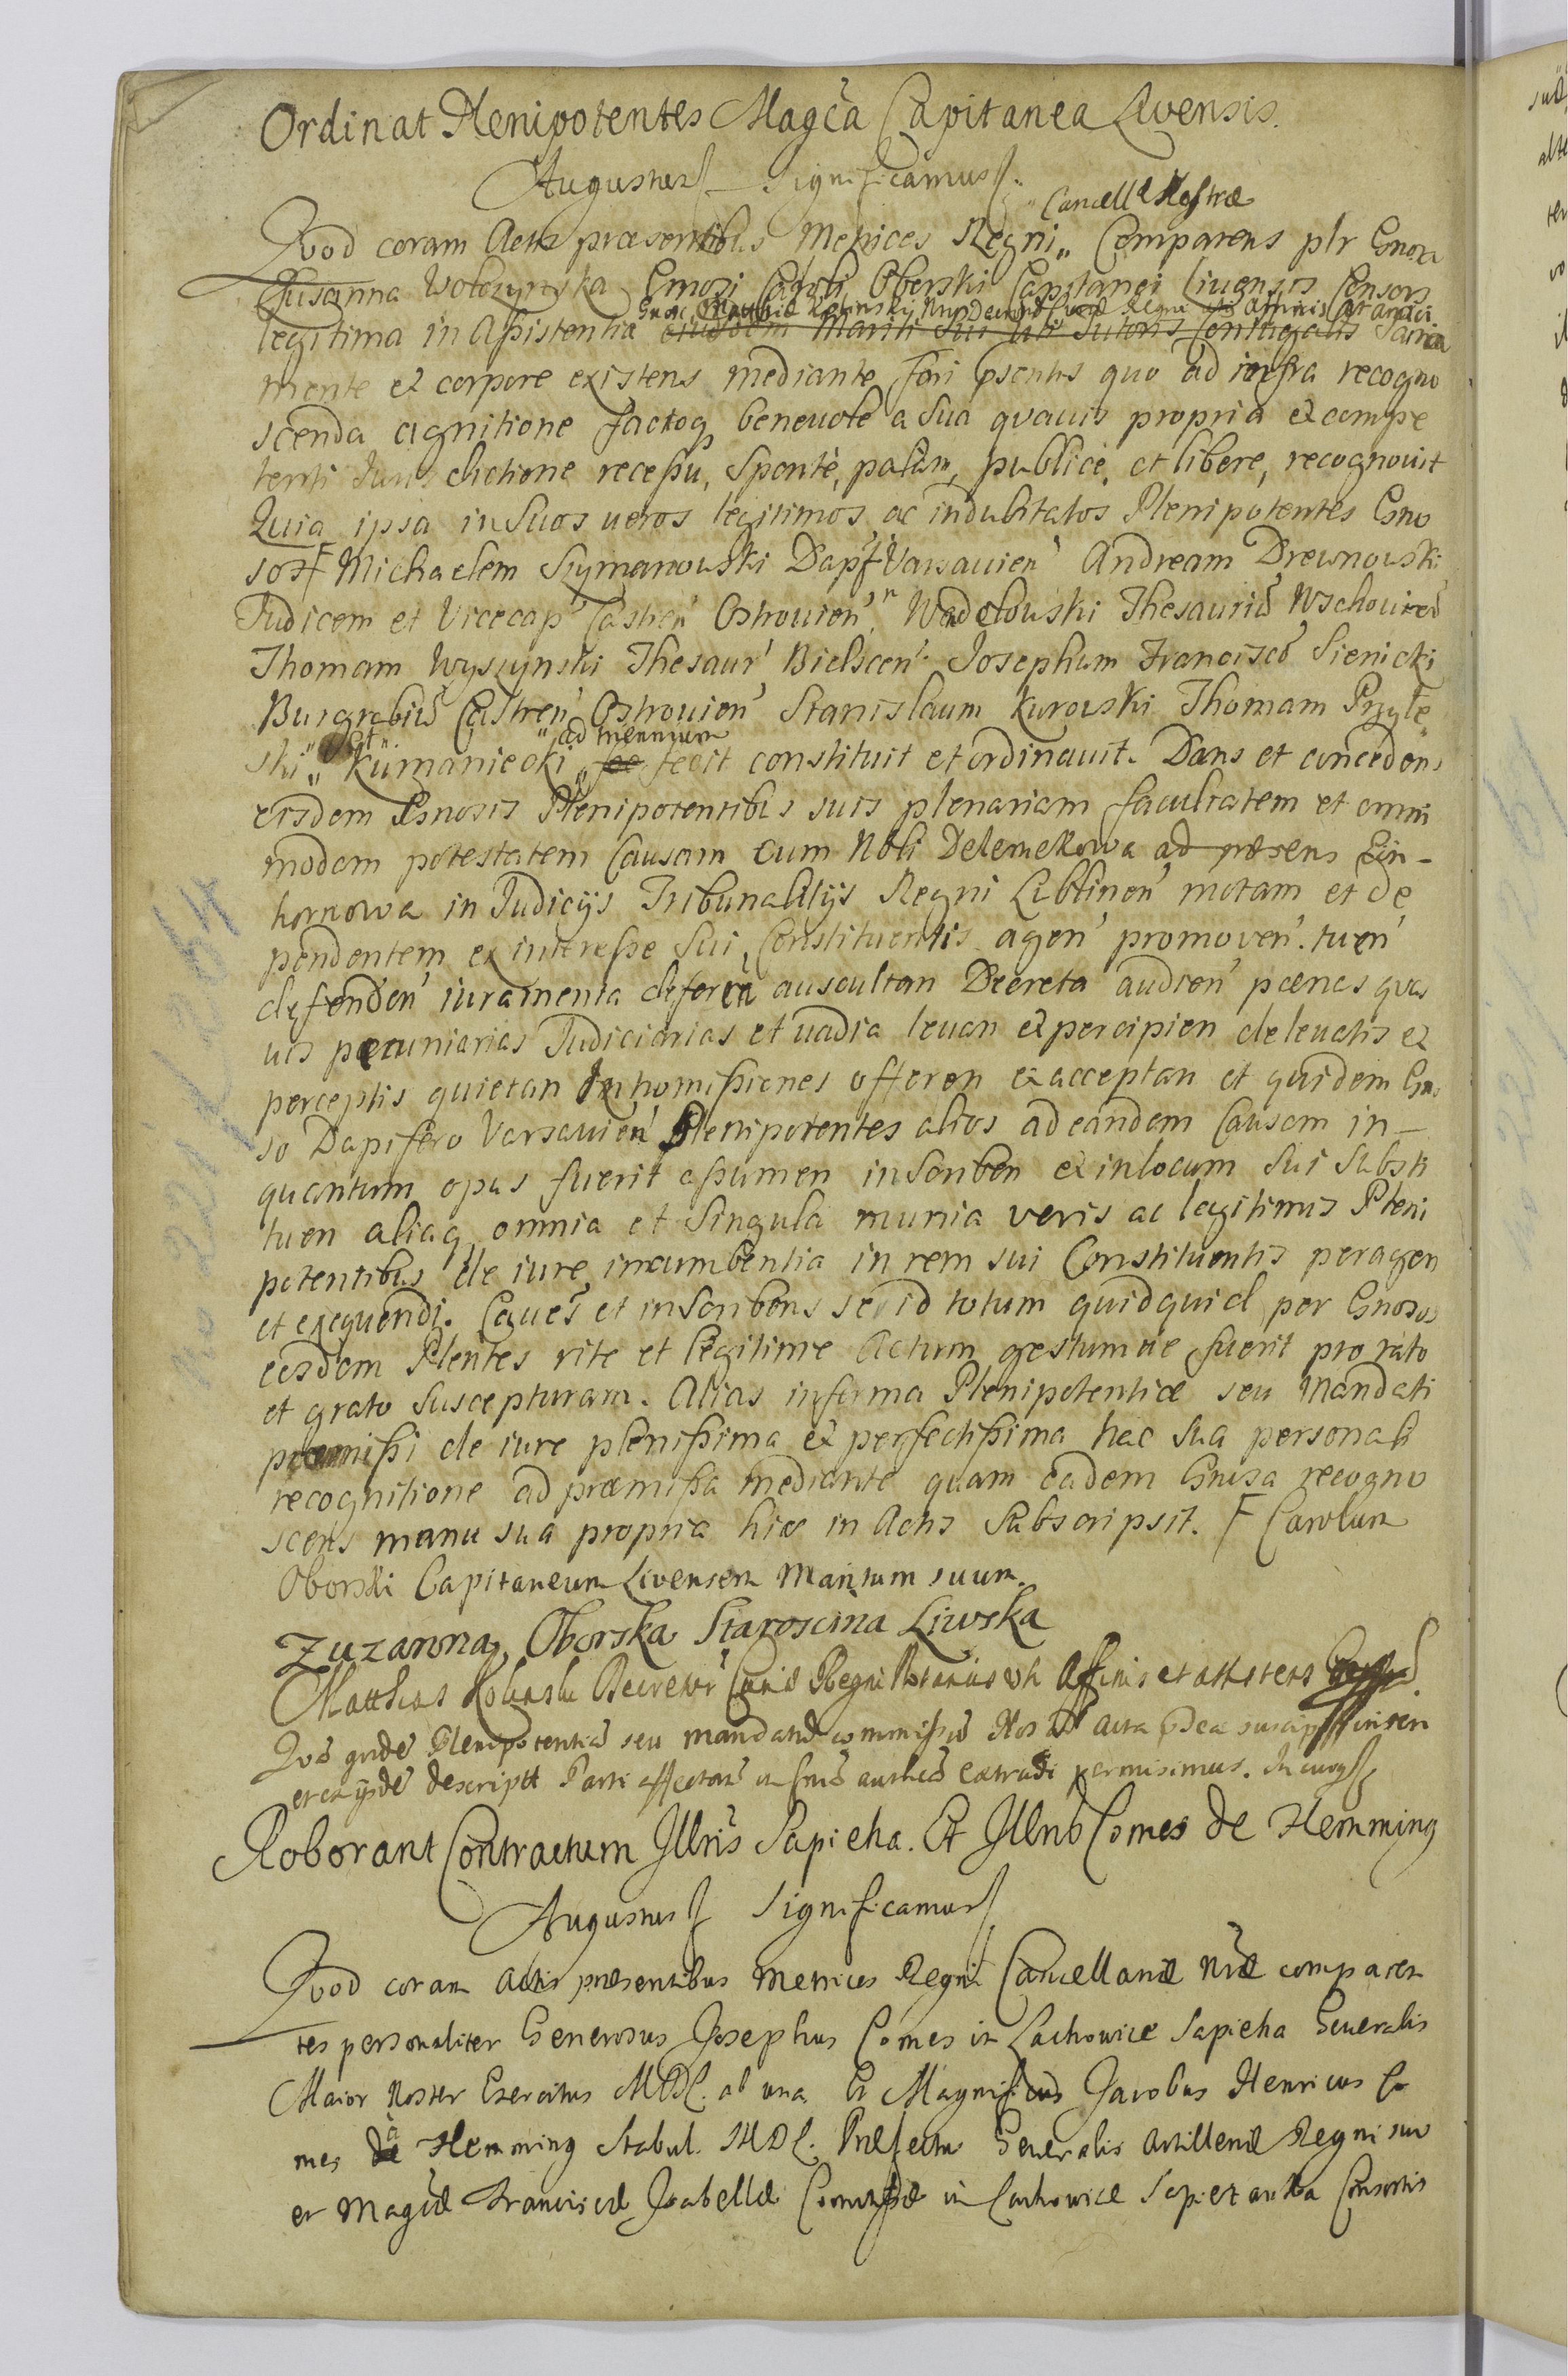 Ordinat Plenipotentes Magca Capitanea Livensis.
Augustus Significamus
Cancell Nostræ
Quod coram Actis præsentibus Metrices Regni Comparens plr Gnosa
Susanna Wołczynska Gnosi Caroli Oborski Capitanei Liuensis Consors
Gnosi Matthiæ Kolinsky Affinis
legitima in Assistentia eiusdem Mariti Sui uti Tutoris Coniugalis Sana
mente et corpore existens mediante fori psentis quo ad infra recogno
scenda agnitione factoq benevole a Sua quavis propria et compe
tenti Juris dictione recessu, Sponte, palam, publice, et libere, recognovit
Quia ipsa in Suos veros legitimos ac indubitatos Plenipotentes Gno
sos Ƒ Michaelem Szymanowski Dapf Varsavien Andream Drewnowski
Judicem et Vicecap Castren Ostrovien, Wadołowski Thesauriu Wschovien
Thomam Wyszynski Thesaur Bielscen Josephum Francisco Sienicki
Burgrabiu Castren Ostrovien Stanislaum Kurowski Thomam Przyłe
et ad triennium
ski Kumaniecki fe fecit constituit et ordinavit. Dans et conceden
eisdem Gnosis Plenipotentibus suis plenariam facultatem et omni
modam potestatem Causam cum Nobli Delemekowa ad præsens Ein-
hornowa in Judicijs Tribunalitijs Regni Lublinen motam et de
pendentem ex interesse Sui Constituentis agen promoven. tuen
defenden iuramenta deferen auscultan Decreta audien pænas quas
vis pecuniarias Judiciarias et vadia levan et percipien de levatis et
perceptis quietan Inhomissiones offeren et acceptan et quidem Gno
so Dapifero Varsavien Plenipotentes alios ad eandem Causam in-
quantum opus fuerit assumen inscriben et in locum Sui Substi
tuen aliaq omnia et Singula munia veris ac legitimis Pleni
potentibus de iure incumbentia in rem sui Constituentis peragen
et exequendi. Caves et inscribens se id totum quidquid per Gnosos
eosdem Plentes rite et legitime Actum gestumve fuerit pro rato
et grato Suscepturam. Alias in forma Plenipotentiæ seu Mandati
præmissi de iure plenissima et perfectissima hac Sua personali
recognitione ad præmissa mediante quam eadem Gnosa recogno
scens manu sua propria hic in Actis Subscripsit. Ƒ Carolum
Oborski Capitaneum Livensem Maritum suum.
Zuzanna Oborska Staroscina Liwska
Matthias Kolinski Decretor Curiæ Regni Notarius uti Affinis et assistens
Qua quide Plenipotentia seu mandatu commissu Nos ad acta pdca suscip inseri
et ex ijsde descript Parti affectan extradi permisimus. In cuius
Roborant Contractum Illris Sapieha. Et Illris Comes de Flemming
Augustus Significamus
Quod coram actis præsentibus Metrices Regni Cancellariæ Nræ comparen
tes personaliter Generosus Josephus Comes in Lachowice Sapieha Generalis
Maior Noster Exercitus MDL. ab una Et Magnificus Jacobus Henricus Co
mes de à Flemming Stabul. MDL. Præfectus Generalis Artilleriæ Regni suo
et Magcæ Franciscæ Isabellæ Comitissæ in Lachowice Sapiezanka Consortis